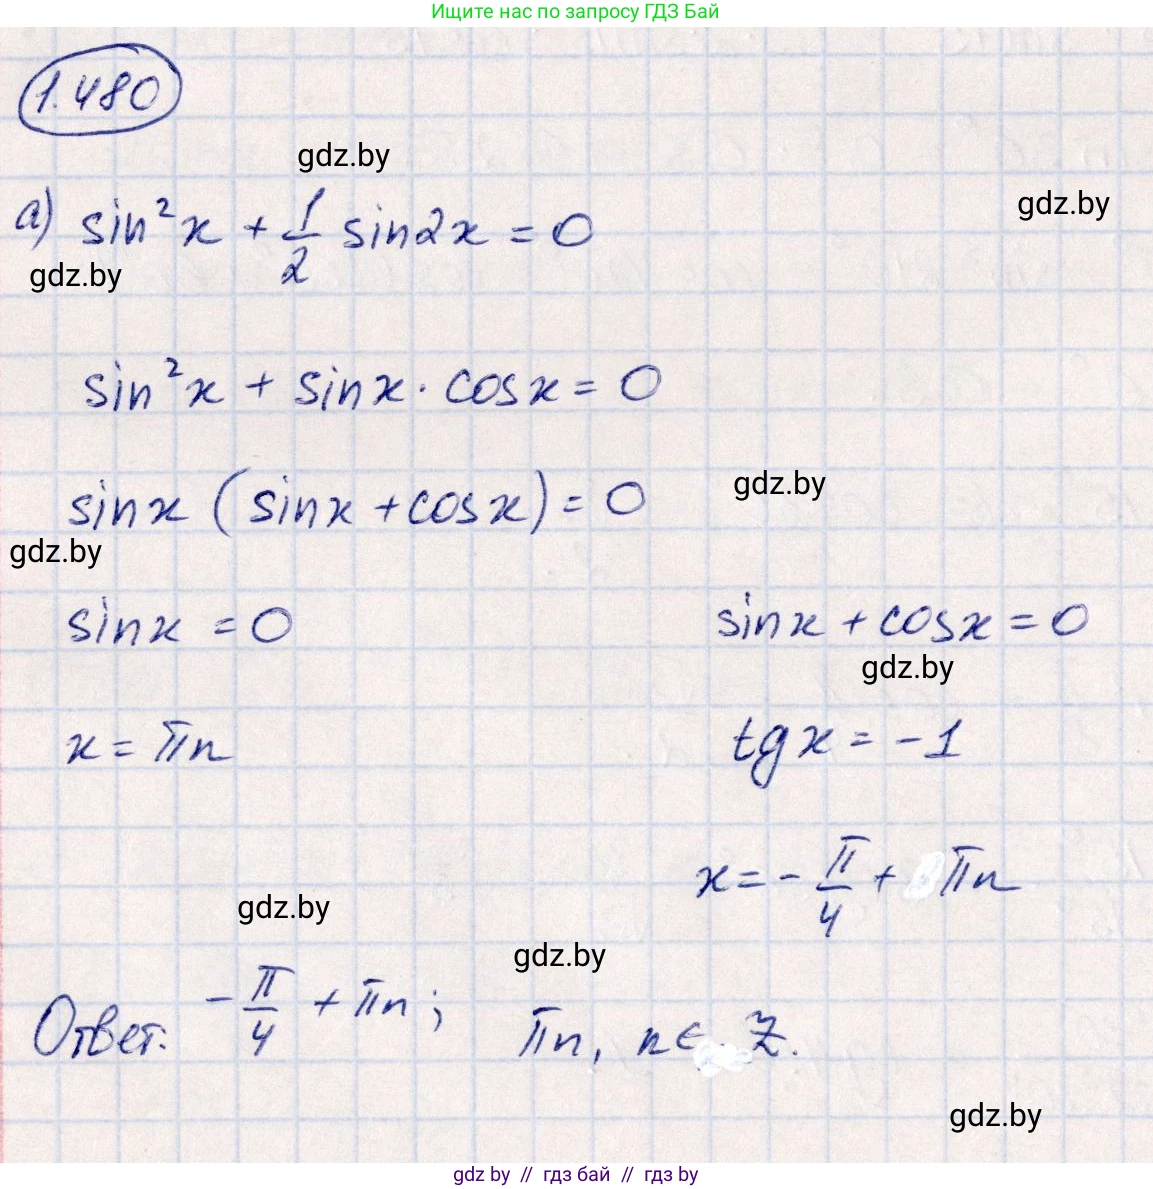 Ищите нас по запросу ГДЗ Бай
1.480
gdz.by
gdz.by
а) sin²x + 1/2 sin2x = 0
gdz.by
sin²x + sinx · cosx = 0
gdz.by
sinx (sinx + cosx) = 0
gdz.by
sinx = 0 sinx + cosx = 0
gdz.by
x = πn tgx = -1
x = - π/4 + πn
gdz.by
gdz.by
Ответ: - π/4 + πn; πn, n ∈ Z.
gdz.by
gdz by // гдз бай // гдз by